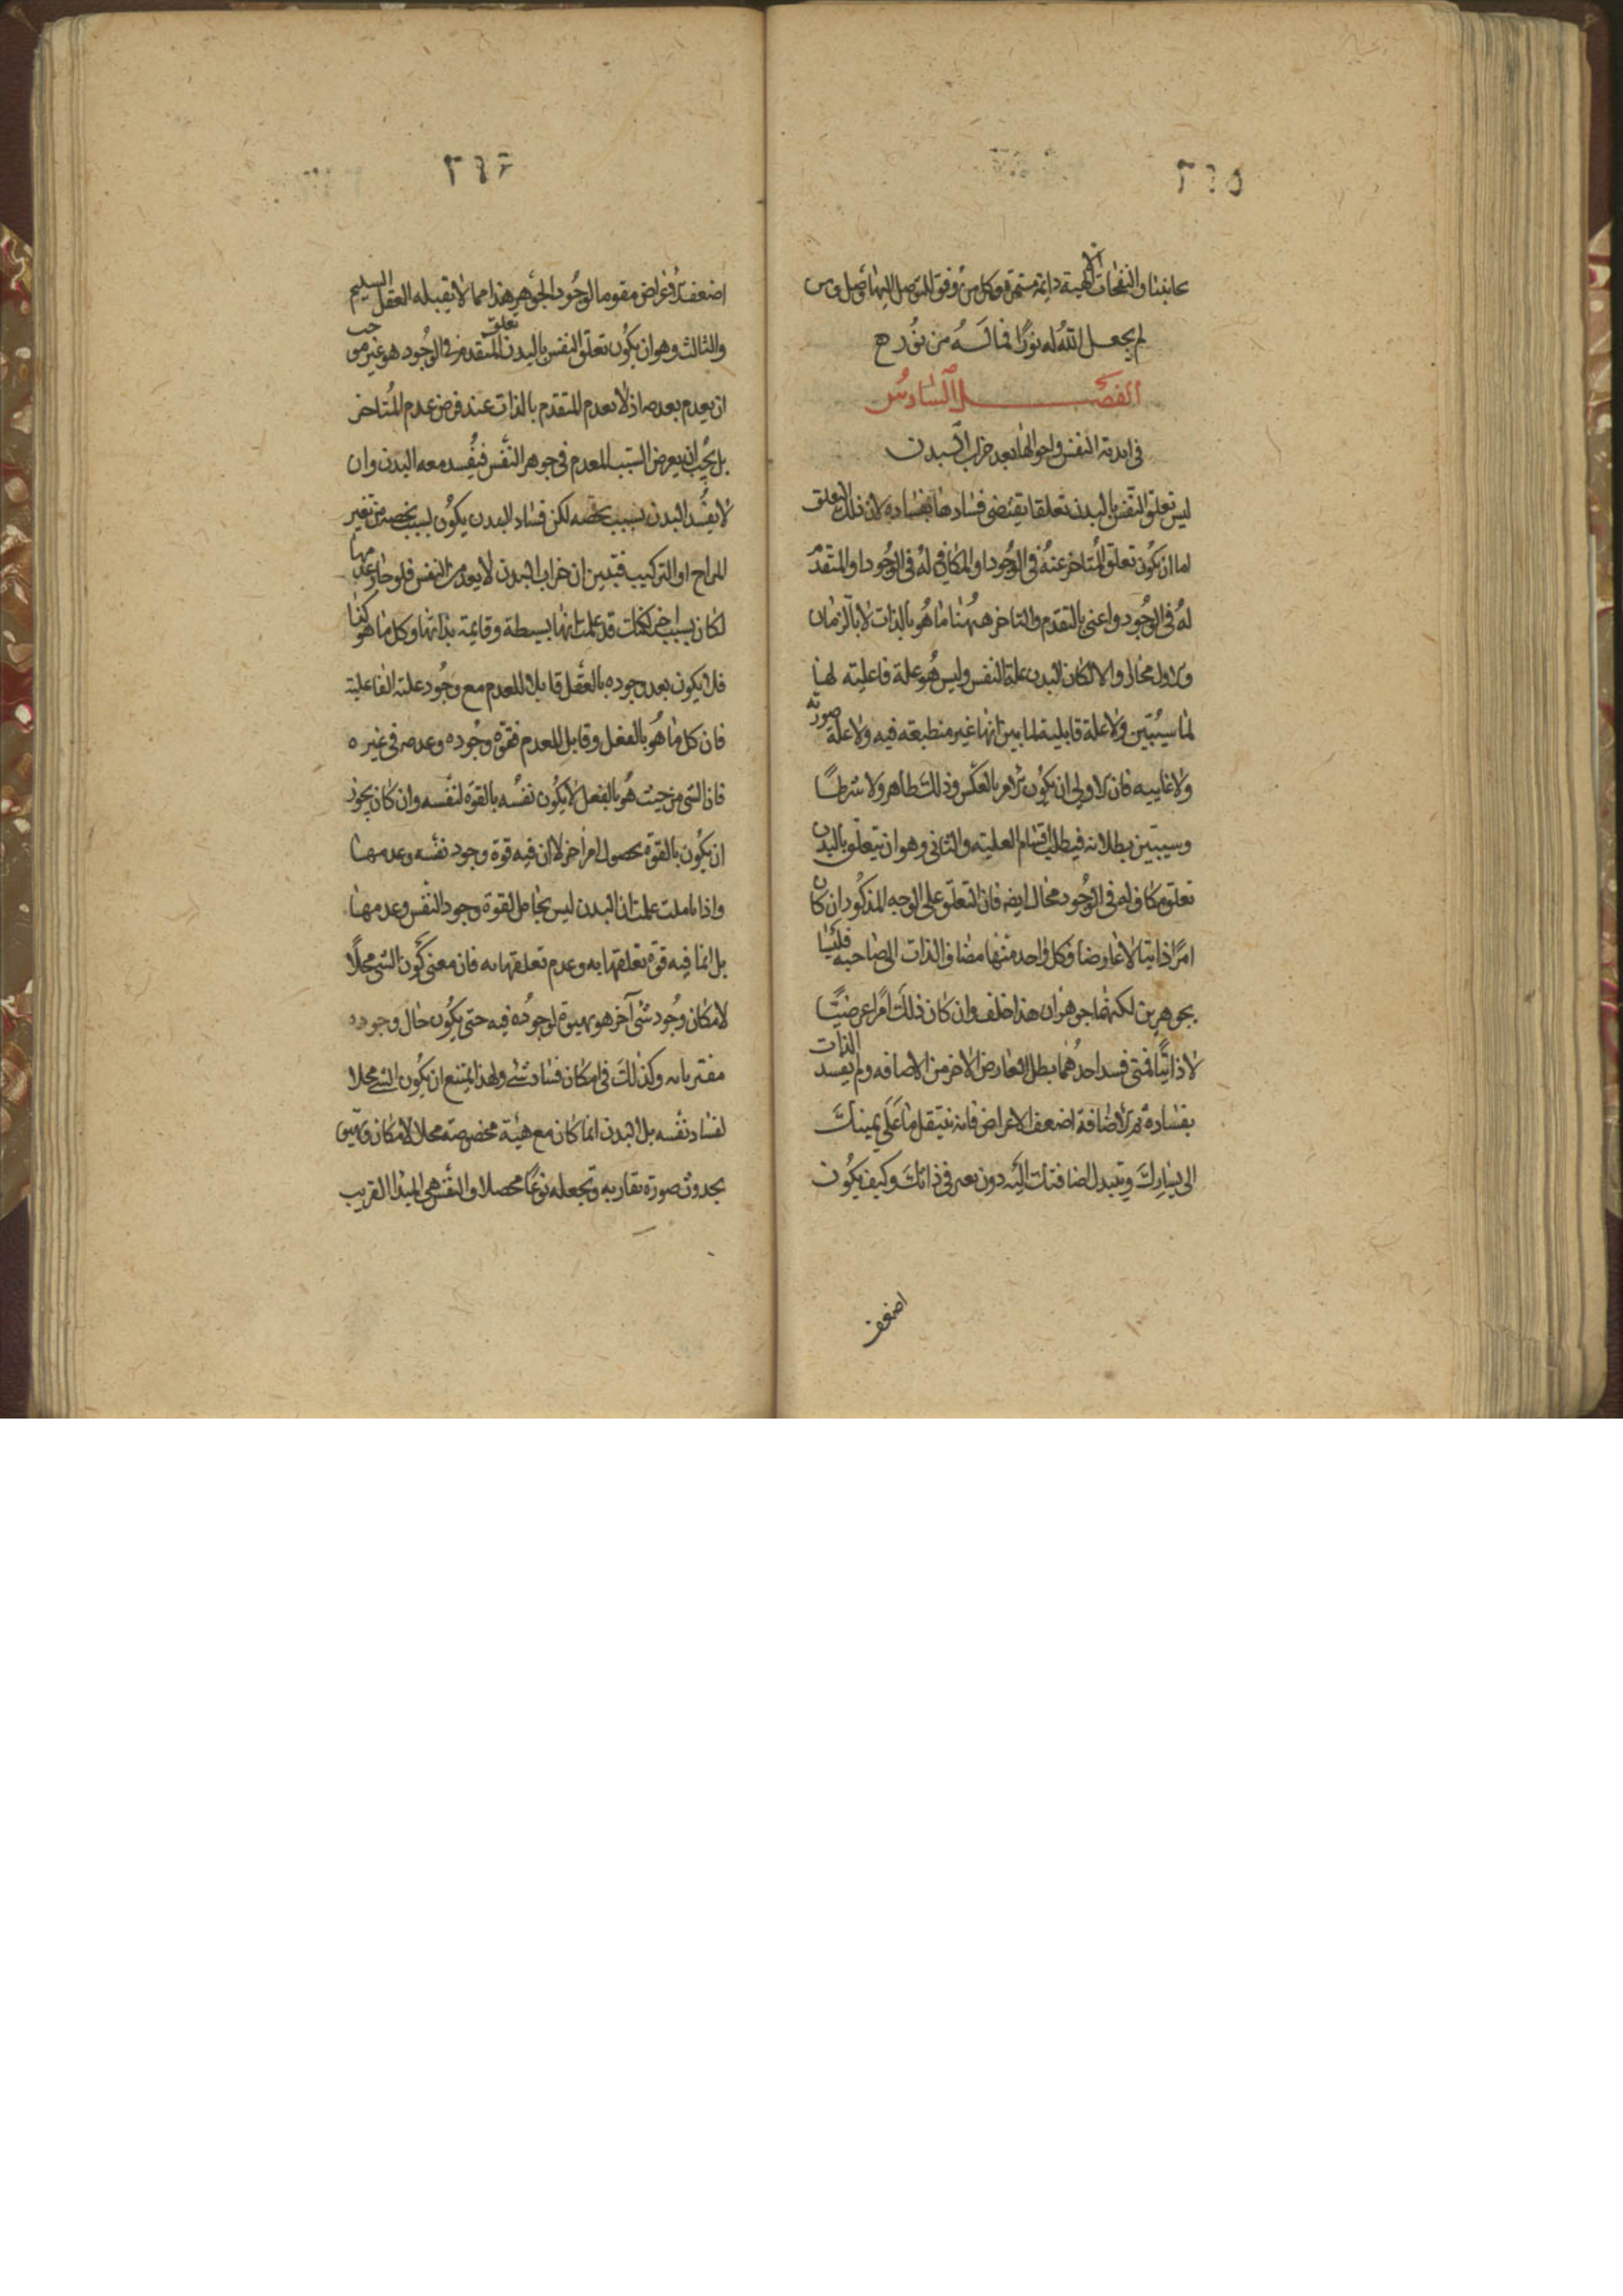 ٣٦٥
عايقنا والنفحات الالهية دائمة مستمرة وكل من وفق للتوصل اليها وصل ومن
لم يجعل الله له نورا فما له من نور ح
الفصل السادس
فى ابدية النفس واحوالها بعد خراب البدن
ليس تعلق النفس بالبدن تعلقا يقتضى فسادها بفساده لان ذلك التعلق
اما ان يكون تعلق المتاخر عنه فى الوجود او المكافى له فى الوجود او المتقدم
له فى الوجود واعنى بالتقدم والتاخر ههنا ما هو بالذات لا بالزمان
والاول محال والا لكان البدن علة النفس وليس هو علة فاعلية لها
لما سيتبين ولا علة قابلية لما بين انها غير منطبعة فيه ولا علة صورية
ولا غاييه فان الاولى ان يكون الامر بالعكس وذلك ظاهر ولا شرطا
وسيتبين بطلانه فيبطل اقسام العلية والثانى وهو ان يتعلق بالبدن
تعلق مكاف له فى الوجود محال ايضه فان التعلق على الوجه المذكور ان كان
امرا ذاتيا لا عارضا فكل واحد منهما مضاف الذات الى صاحبه فليسا
بجوهرين لكنهما جوهران هذا خلف وان كان ذلك امرا عرضيا
لا ذاتيا فمتى فسد احدهما بطل العارض الاخر من الاضافه ولم يفسد الذات
بفساده ثم الاضافة اضعف الاعراض فانه ينتقل ما على يمينك
الى يسارك ويتبدل اضافتك اليه دون تغير فى ذاتك وكيف يكون
اضعف
٣٦٦
اضعف الاعراض مقوما لوجود الجوهر هذا مما لا يقبله العقل السليم
والثالث وهو ان يكون تعلق النفس بالبدن تعلق المتقدم فى الوجود هو غير موجب
ان يعدم بعدمه اذ لا يعدم المتقدم بالذات عند فرض عدم المتاخر
بل يجب ان يعرض السبب المعدم فى جوهر النفس فيفسد معه البدن وان
لا يفسد البدن بسبب يخصه لكن فساد البدن يكون بسبب يخصه من تغير
المزاج او التركيب فتبين ان خراب البدن لا يعدم النفس فلو جاز عدمها
لكان بسبب اخر لكنك قد علمت انها بسيطة وقايمة بذاتها وكل ما هو كذا
فلا يكون بعد وجوده بالعقل قابلا للعدم مع وجود علته الفاعلية
فان كل ما هو بالفعل وقابل للعدم فقوة وجوده وعدمه فى غيره
فان الشى من حيث هو بالفعل لا يكون نفسه بالقوة لنفسه وان كان يجوز
ان يكون بالقوة بحصول امر اخر لا ان فيه قوة وجود نفسه وعدمها
واذا تاملت علمت ان البدن ليس بحامل لقوة وجود النفس وعدمها
بل انما فيه قوة تعلقها به وعدم تعلقها به فان معنى كون الشى محلا
لامكان وجود شى آخر هو تهيوه لوجوده فيه حتى يكون حال وجوده
مقتربا به وكذلك فى امكان فساد شئ ولهذا يمتنع ان يكون الشئ محلا
لفساد نفسه بل البدن انما كان مع هيئة مخصوصة محلا لامكان وتهيؤ
بحدوث صورة تقاربه وتجعله نوعا محصلا والنفس هى المبدا القريب